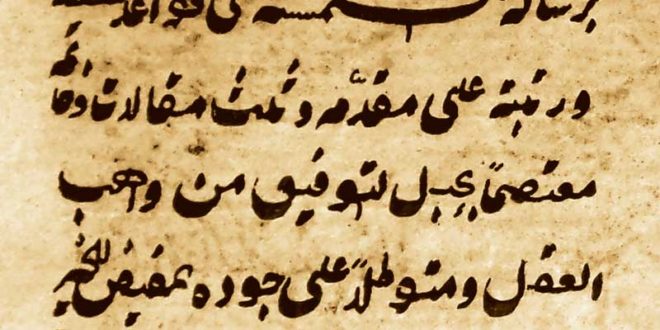 برسالة الشمسيه في القواعد
ورتبته على مقدّمه وثلث مقالات وخاتمه
معتصماً بحبل التوفيق من واهب
العقل ومتوكلاً على جوده بمفيض الخير